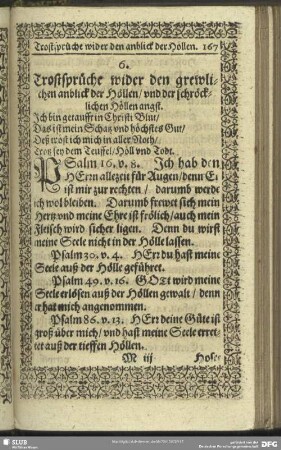 Trostsprüche wider den anblick der Höllen. 167
6.
Trostsprüche wider den grewli-
chen anblick der Höllen / vnd der schröck-
lichen Höllen angst.
Ich bin getaufft in Christi Blut /
Das ist mein Schatz vnd höchstes Gut /
Deß tröst ich mich in aller Noth.
Trotz sey dem Teuffel / Höll vnd Todt.
PSalm 16. v. 8. Ich hab den
HErrn allezeit für Augen / denn Er
ist mir zur rechten / darumb werde
ich wol bleiben. Darumb frewet sich mein
Hertz vnd meine Ehre ist frölich / auch mein
Fleisch wird sicher ligen. Denn du wirst
meine Seele nicht in der Hölle lassen.
Psalm 30. v. 4. HErr du hast meine
Seele auß der Hölle geführet.
Psalm 49. v. 16. GOtt wird meine
Seele erlösen auß der Höllen gewalt / denn
er hat mich angenommen.
Psalm 86. v. 13. HErr deine Güte ist
groß über mich / vnd hast meine Seele erret-
tet auß der tieffen Höllen.
M iij Hose
SLUB
DFG